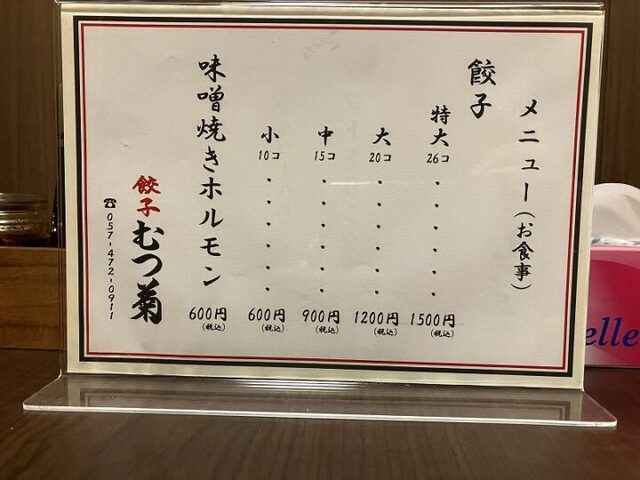 メニュー(お食事)
餃子
特大 26コ・・・・・・1500円(税込)
大 20コ・・・・・・1200円(税込)
中 15コ・・・・・・900円(税込)
小 10コ・・・・・・600円(税込)
味噌焼きホルモン 600円(税込)
餃子むつ菊
☎057-472-0911
elle